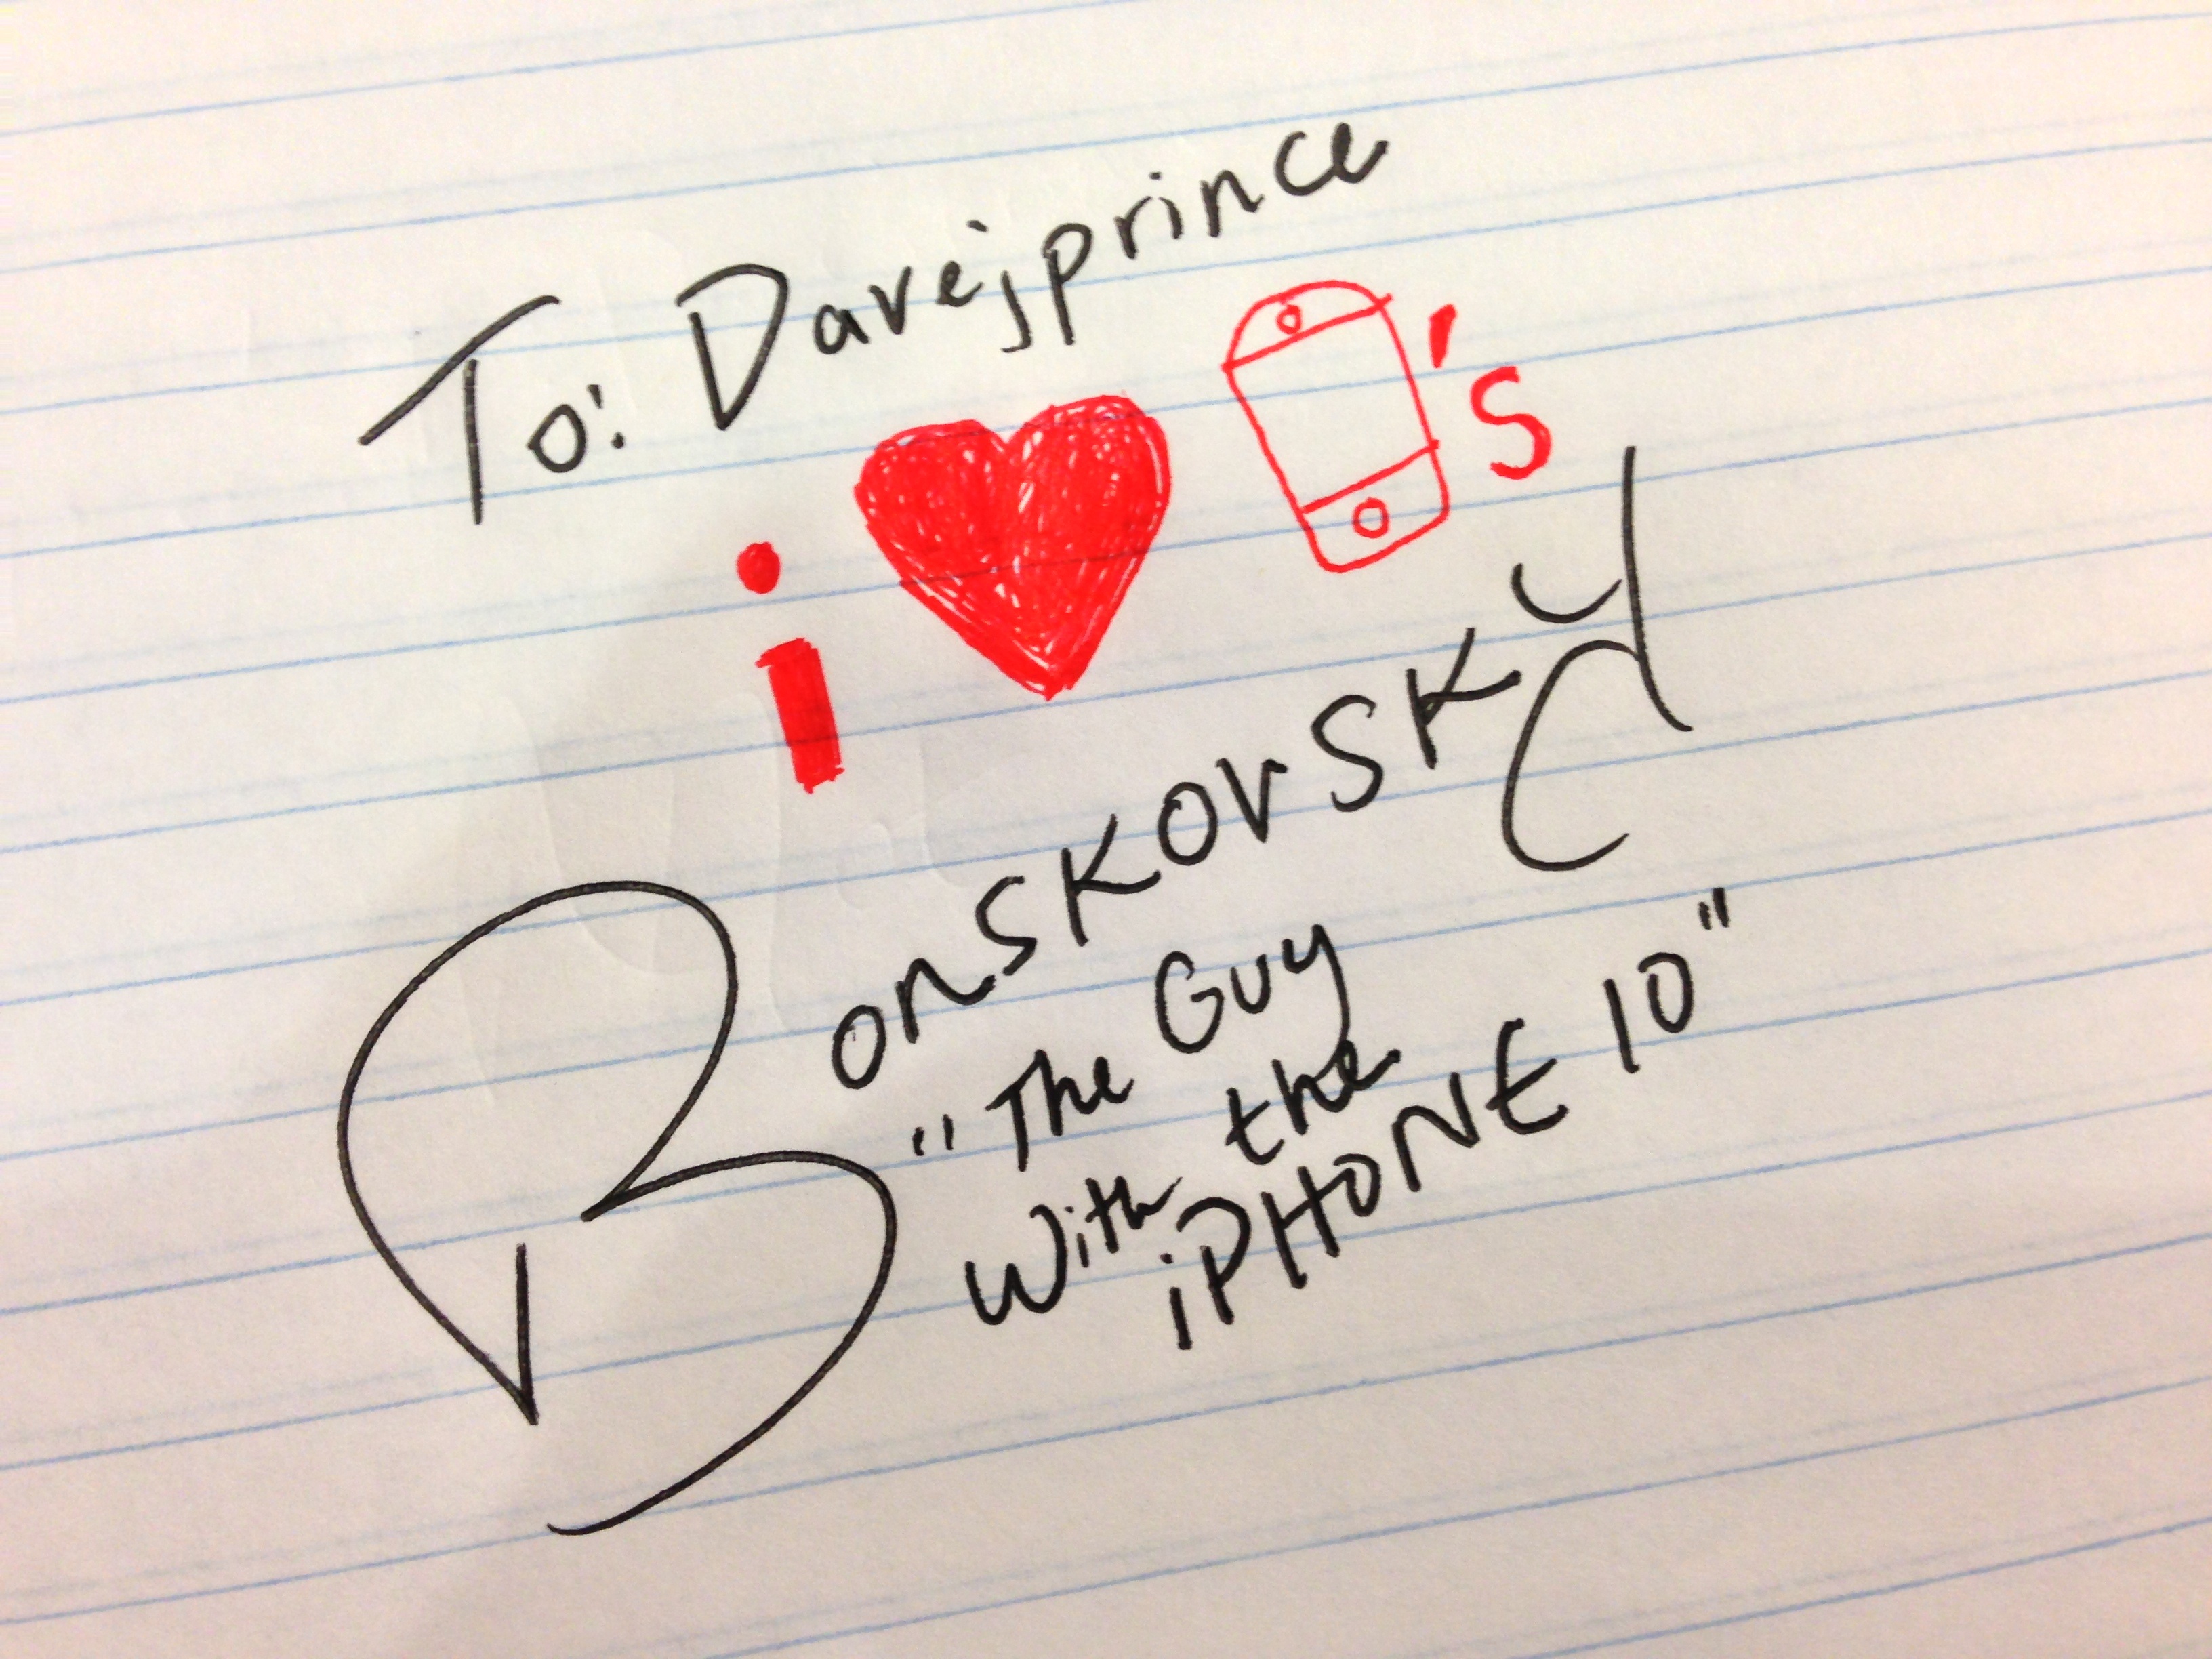 To: Davejprince
i ❤ 📱's
Bonskovsky
"The Guy
With the
iPHONE 10"